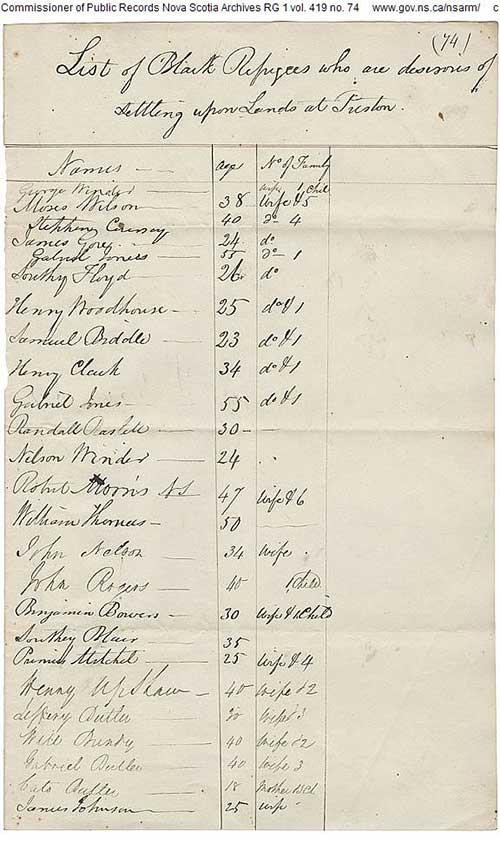 Commissioner of Public Records Nova Scotia Archives RG 1 vol. 419 no. 74 www.gov.ns.ca/nsarm/ c
(74)
List of Black Refugees who are desirous of
settling upon Lands at Preston.
Names age No of Family
George Winder wife 1 Child
Moses Wilson 38 wife & 5
Stephen 40 do 4
James Gores 24 do
Gabriel Jones 55 do 1
Southy Floyd 26 do
Henry Woodhouse 25 do & 1
Samuel Biddle 23 do & 1
Henry Clark 34 do & 1
Gabriel Jones 55 do & 1
Randall 30 —
Nelson Winder 24
Robert Morris 47 wife & 6
William Thomas 50
John Nelson 34 wife
John Rogers 40 1 Child
Benjamin Bowers 30 wife & 1 Child
Southey Blair 35
Primus Mitchel 25 wife & 4
Henry Upshaw 40 wife & 2
Jeffery Butler 30 wife & 3
Will Bundy 40 wife & 2
Gabriel Butler 40 wife 3
Cato Butler 18
James Johnson 25 wife